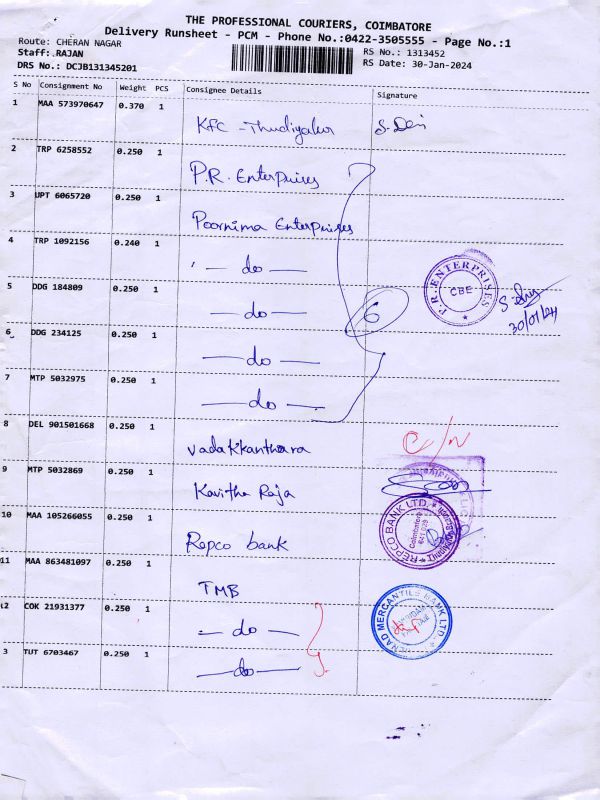 THE PROFESSIONAL COURIERS, COIMBATORE
Delivery Runsheet - PCM - Phone No.:0422-3505555 - Page No.:1
Route: CHERAN NAGAR
RS No.: 1313452
Staff: RAJAN
RS Date: 30-Jan-2024
DRS No.: DCJB131345201
S No Consignment No Weight PCS Consignee Details Signature
1 MAA 573970647 0.370 1 KFC - Thudiyalur S. Devi
2 TRP 6258552 0.250 1 P.R. Enterprises
3 UPT 6065720 0.250 1 Poornima Enterprises
4 TRP 1092156 0.240 1 - do -
P.R. ENTERPRISES
CBE
5 DDG 184809 0.250 1 - do -
6
30/01/24
6 DDG 234125 0.250 1 - do -
7 MTP 5032975 0.250 1 - do -
8 DEL 901501668 0.250 1 Vadakkanthara
9 MTP 5032869 0.250 1 Kavitha Raja
10 MAA 105266055 0.250 1 Repco bank
REPCO BANK LTD.
Coimbatore
11 MAA 863481097 0.250 1 TMB
12 COK 21931377 0.250 1 - do -
NAD MERCANTILE BANK LTD.
3 TUT 6703467 0.250 1 - do -